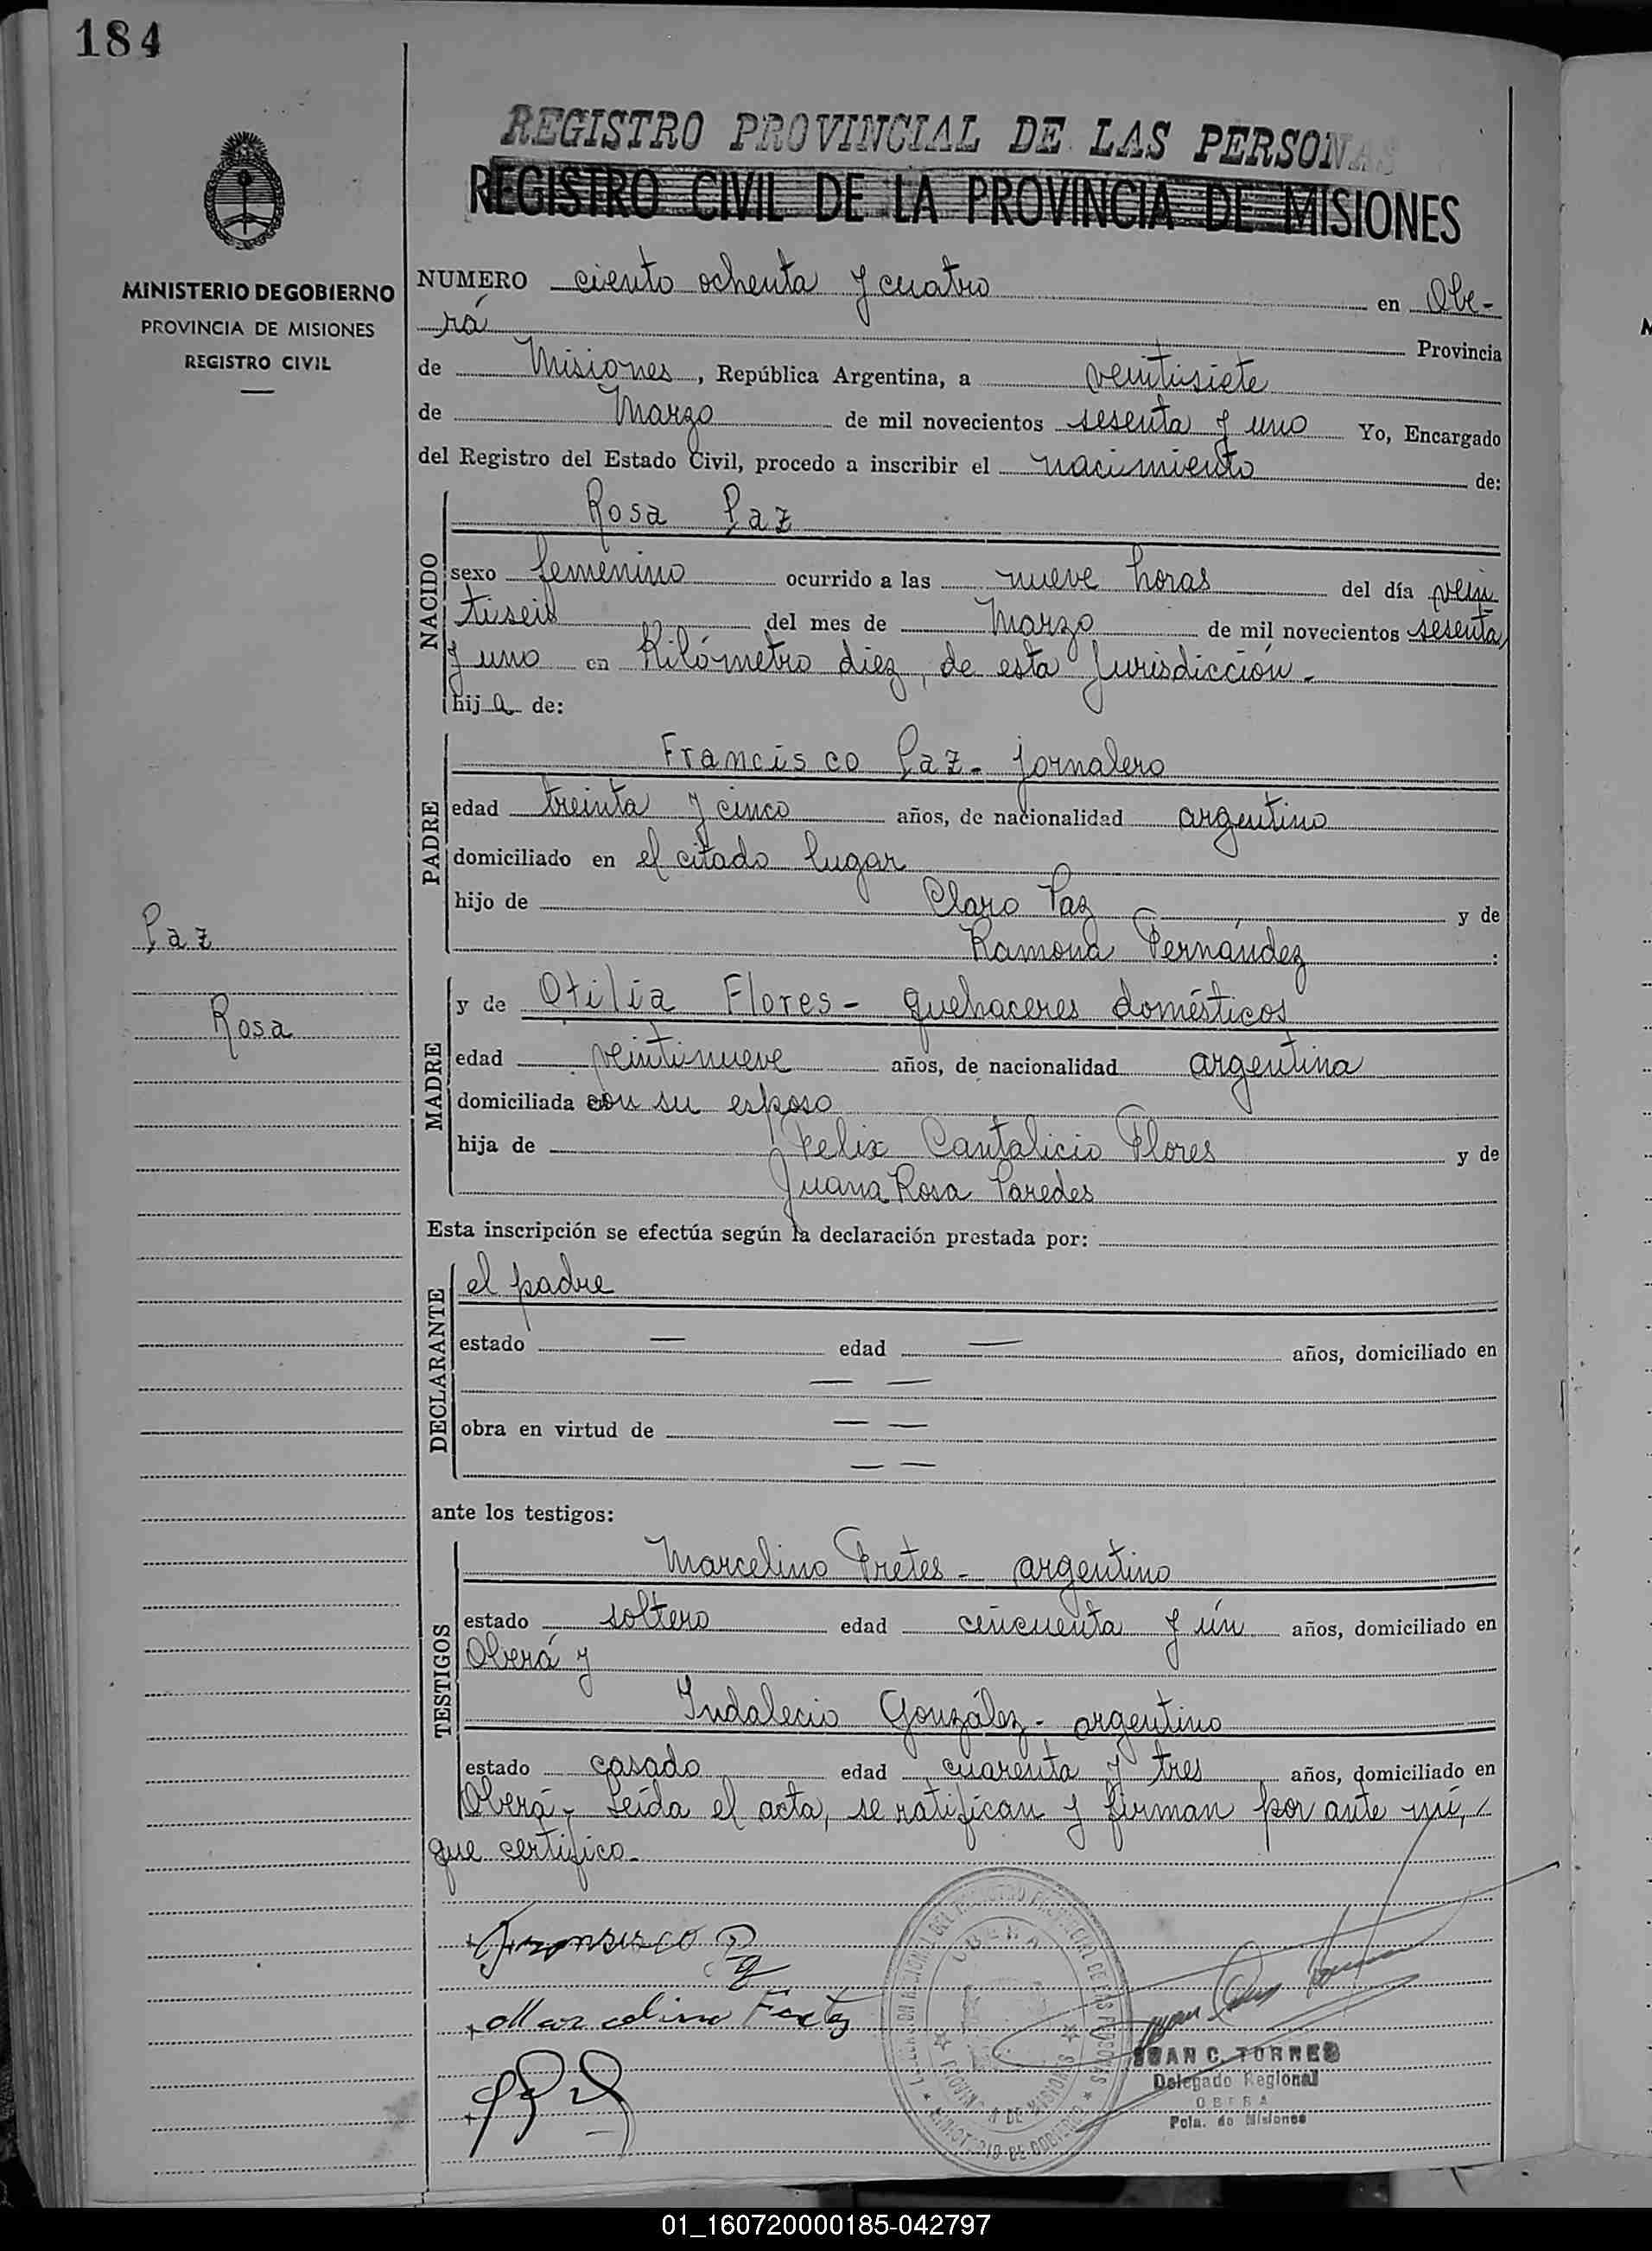 184
REGISTRO PROVINCIAL DE LAS PERSONAS
REGISTRO CIVIL DE LA PROVINCIA DE MISIONES
MINISTERIO DE GOBIERNO
PROVINCIA DE MISIONES
REGISTRO CIVIL
NUMERO ciento ochenta y cuatro en Obe-
rá Provincia
de Misiones, República Argentina, a veintisiete
de Marzo de mil novecientos sesenta y uno Yo, Encargado
del Registro del Estado Civil, procedo a inscribir el nacimiento de:
NACIDO
Rosa Paz
sexo femenino ocurrido a las nueve horas del día vein
tiseis del mes de Marzo de mil novecientos sesenta
y uno en Kilómetro diez, de esta Jurisdicción.-
hija de:
PADRE
Francisco Paz- jornalero
edad treinta y cinco años, de nacionalidad argentino
domiciliado en el citado lugar
hijo de Claro Paz y de
Ramona Fernández :
Paz
Rosa
MADRE
y de Otilia Flores- quehaceres domésticos
edad veintinueve años, de nacionalidad argentina
domiciliada con su esposo
hija de Felix Cantalicio Flores y de
Juana Rosa Paredes
Esta inscripción se efectúa según la declaración prestada por:
DECLARANTE
el padre
estado — edad — años, domiciliado en
— —
obra en virtud de — —
— —
ante los testigos:
TESTIGOS
Marcelino Fretes- argentino
estado soltero edad cincuenta y un años, domiciliado en
Oberá y
Indalecio González- argentino
estado casado edad cuarenta y tres años, domiciliado en
Oberá- Leída el acta, se ratifican y firman por ante mí,
que certifico-
OBERA
PROVINCIA DE MISIONES
MINISTERIO DE GOBIERNO
JUAN C. TORRES
Delegado Regional
OBERA
Pcia. de Misiones
01_160720000185-042797